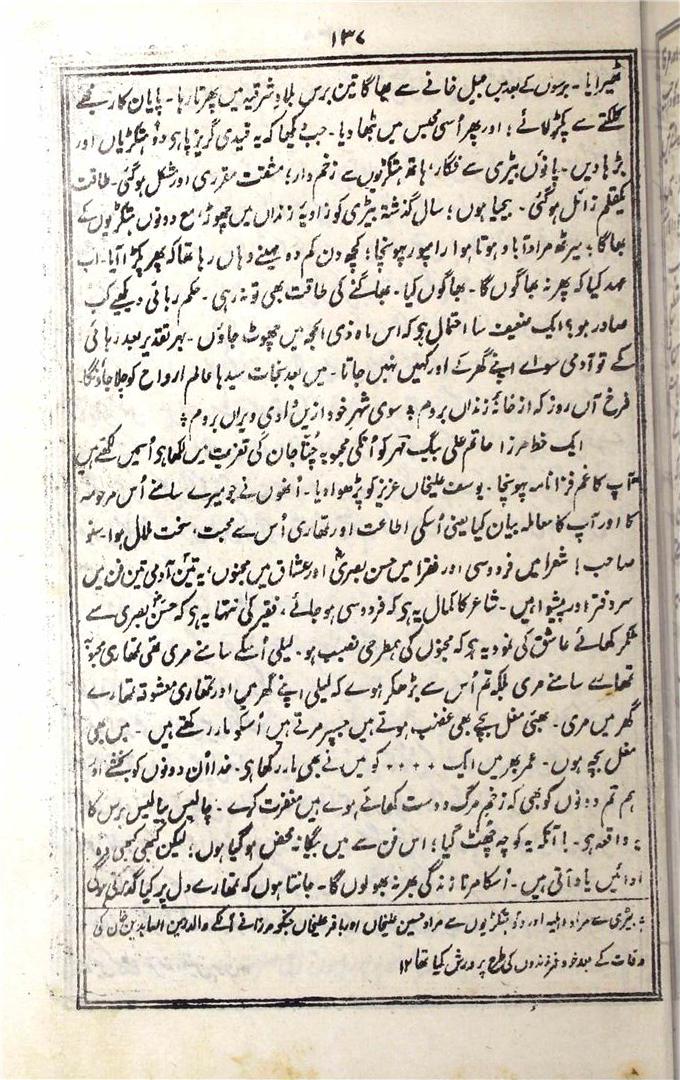 ۱۳۷
ٹھیرایا ۔ برسوں کے بعد میں جیل خانے سے بھاگا تین برس بلاد شرقیہ میں پھرتا رہا ۔ پایان کار مجھے
کلکتے سے پکڑ لائے ؛ اور پھر اُسی محبس میں بٹھا دیا ۔ جب دیکھا کہ یہ قیدی گریز پا ہی دو ہتکڑیاں اور
بڑھا دیں ۔ پانوں بیڑی سے فگار ، ہاتھ ہتکڑیوں سے زخم دار ؛ مشقت مقرری اور مشکل ہو گئی ۔ طاقت
یکقلم زائل ہو گئی ۔ بیحیا ہوں ؛ سال گذشتہ بیڑی کو زاویۂ زنداں میں چھوڑ ، مع دونوں ہتکڑیوں کے
بھاگا ؛ میرٹھ مرادآباد ہوتا ہوا رامپور پہونچا ؛ کچھ دن کم دو مہینے وہاں رہا تھا کہ پھر پکڑا آیا ۔ اب
عہد کیا کہ پھر نہ بھاگوں گا ۔ بھاگوں کیا ۔ بھاگنے کی طاقت بھی تو نہ رہی ۔ حکم رہائی دیکھیے کب
صادر ہو ؟ ایک ضعیف سا احتمال ہی کہ اس ماہ ذی الحجہ میں چھوٹ جاؤں ۔ بہر تقدیر بعد رہائی
کے تو آدمی سوائے اپنے گھر کے اور کہیں نہیں جاتا ۔ میں بعد نجات سیدھا عالم ارواح کو چلا جاؤنگا ۔
فرخ آں روز کہ از خانۂ زنداں بروم ؞ سوی شہر خود ازیں وادی ویراں بروم ؞
ایک خط مرزا حاتم علی بیگ مہر کو اُنکی محبوبہ چُنّا جان کی تعزیت میں لکھا ہی اُسمیں لکھتے ہیں
"آپ کا غم فزا نامہ پہونچا ۔ یوسف علیخاں عزیز کو پڑھوا دیا ۔ اُنھوں نے جو میرے سامنے اُس مرحومہ
کا اور آپ کا معاملہ بیان کیا یعنی اُسکی اطاعت اور تمھاری اُس سے محبت ، سخت ملال ہوا ۔ سنو
صاحب ! شعرا میں فردوسی اور فقرا میں حسن بصریؒ اور عشاق میں مجنوں ، یہ تین آدمی تین فن میں
سر دفتر اور پیشوا ہیں ۔ شاعر کا کمال یہ ہی کہ فردوسی ہو جائے ، فقیر کی انتہا یہ ہی کہ حسنؒ بصری سے
ٹکر کھائے عاشق کی نمود یہ ہی کہ مجنوں کی ہمطرحی نصیب ہو ۔ لیلی اُسکے سامنے مری تھی تمھاری محبوبہ
تمھارے سامنے مری بلکہ تم اُس سے بڑھکر ہوے کہ لیلی اپنے گھر میں اور تمھاری معشوقہ تمھارے
گھر میں مری ۔ بھئی مغل بچے بھی غضب ہوتے ہیں جسپر مرتے ہیں اُسکو مار رکھتے ہیں ۔ میں بھی
مغل بچہ ہوں ۔ عمر بھر میں ایک ۰ ۰ ۰ ۰ کو میں نے بھی مار رکھا ہی ۔ خدا اُن دونوں کو بخشے اور
ہم تم دونوں کو بھی کہ زخم مرگ دوست کھائے ہوے ہیں مغفرت کرے ۔ چالیس بیالیس برس کا
یہ واقعہ ہی ۔ باآنکہ یہ کوچہ چھٹ گیا ؛ اس فن سے میں بیگانہ محض ہو گیا ہوں ؛ لیکن کبھی کبھی وہ
ادائیں یاد آتی ہیں ۔ اُسکا مرنا زندگی بھر نہ بھولوں گا ۔ جانتا ہوں کہ تمھارے دل پر کیا گذرتی ہوگی
بیڑی سے مراد اہلیہ اور دو ہتکڑیوں سے مراد حسین علیخاں اور باقر علیخاں جنکو مرزا نے اُنکے والد زین العابدین خاں کی
وفات کے بعد خود فرزندوں کی طرح پرورش کیا تھا ۱۲